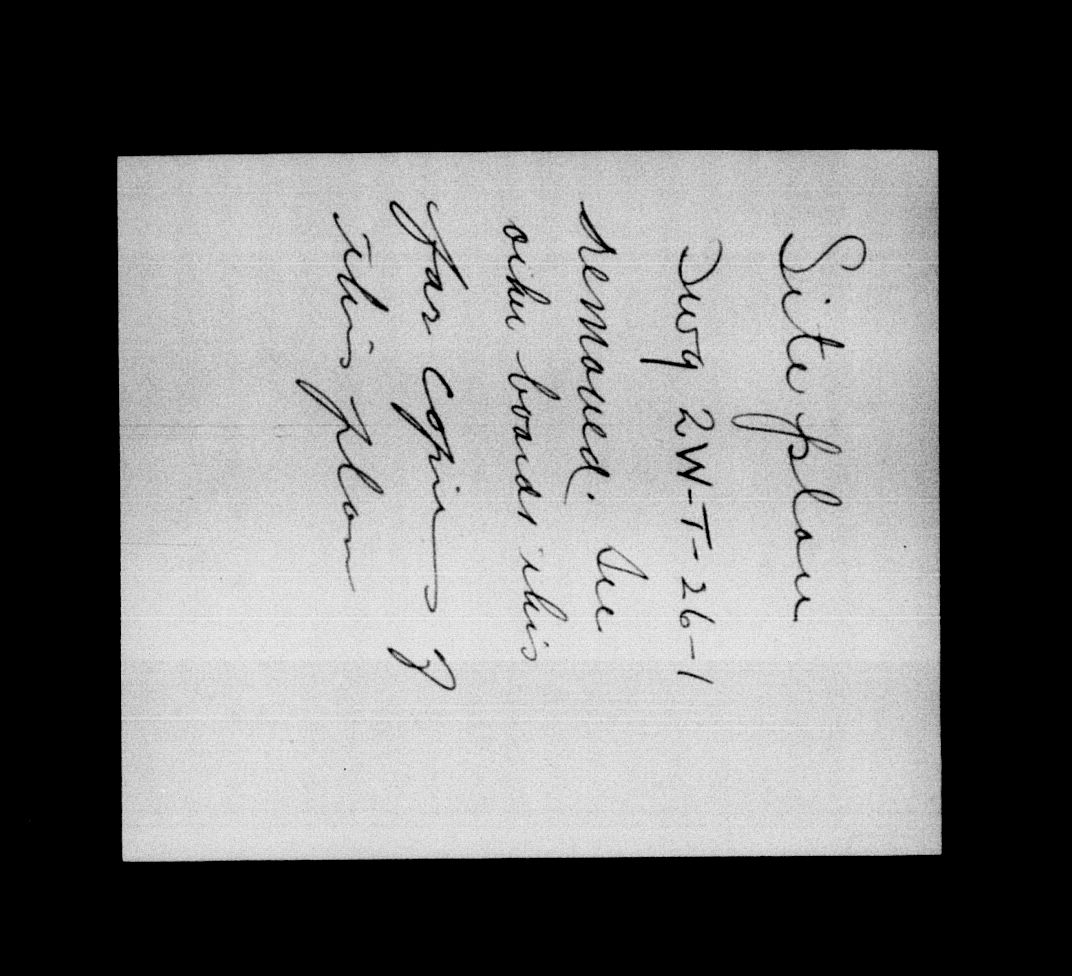 Site plan
Dwg 2W-T-26-1
removed. See
other boards this
for copies of
this plan